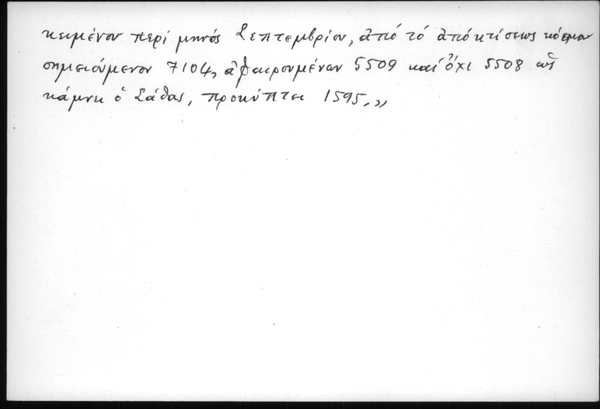 κειμένου περί μηνός Σεπτεμβρίου, ἀπό τό ἀπό κτίσεως κόσμου
σημειούμενον 7104, ἀφαιρουμένων 5509 καί ὄχι 5508 ὡς
κάμνει ὁ Σάθας, προκύπτει 1595.»